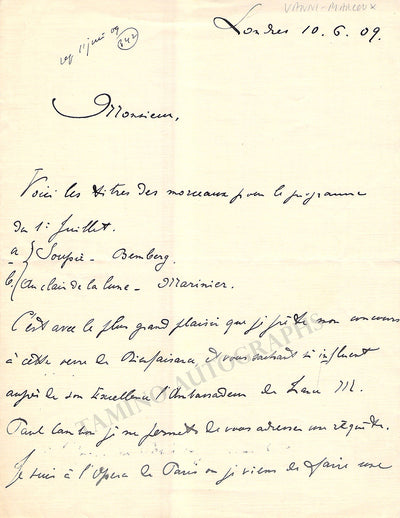 VANNI-MARCOUX
Londres 10.6.09.
11 juin 09
842
Monsieur,
Voici les titres des morceaux pour le programme
du 1er Juillet.
a) Soupir - Bemberg.
b) Au clair de la lune - Marinier.
C'est avec le plus grand plaisir que je prête mon concours
à cette œuvre de Bienfaisance, et vous sachant si influent
auprès de son Excellence l'Ambassadeur de France M.
Paul Cambon je me permets de vous adresser une requête.
Je suis à l'Opera de Paris où je viens de faire une
TAMINO AUTOGRAPHS